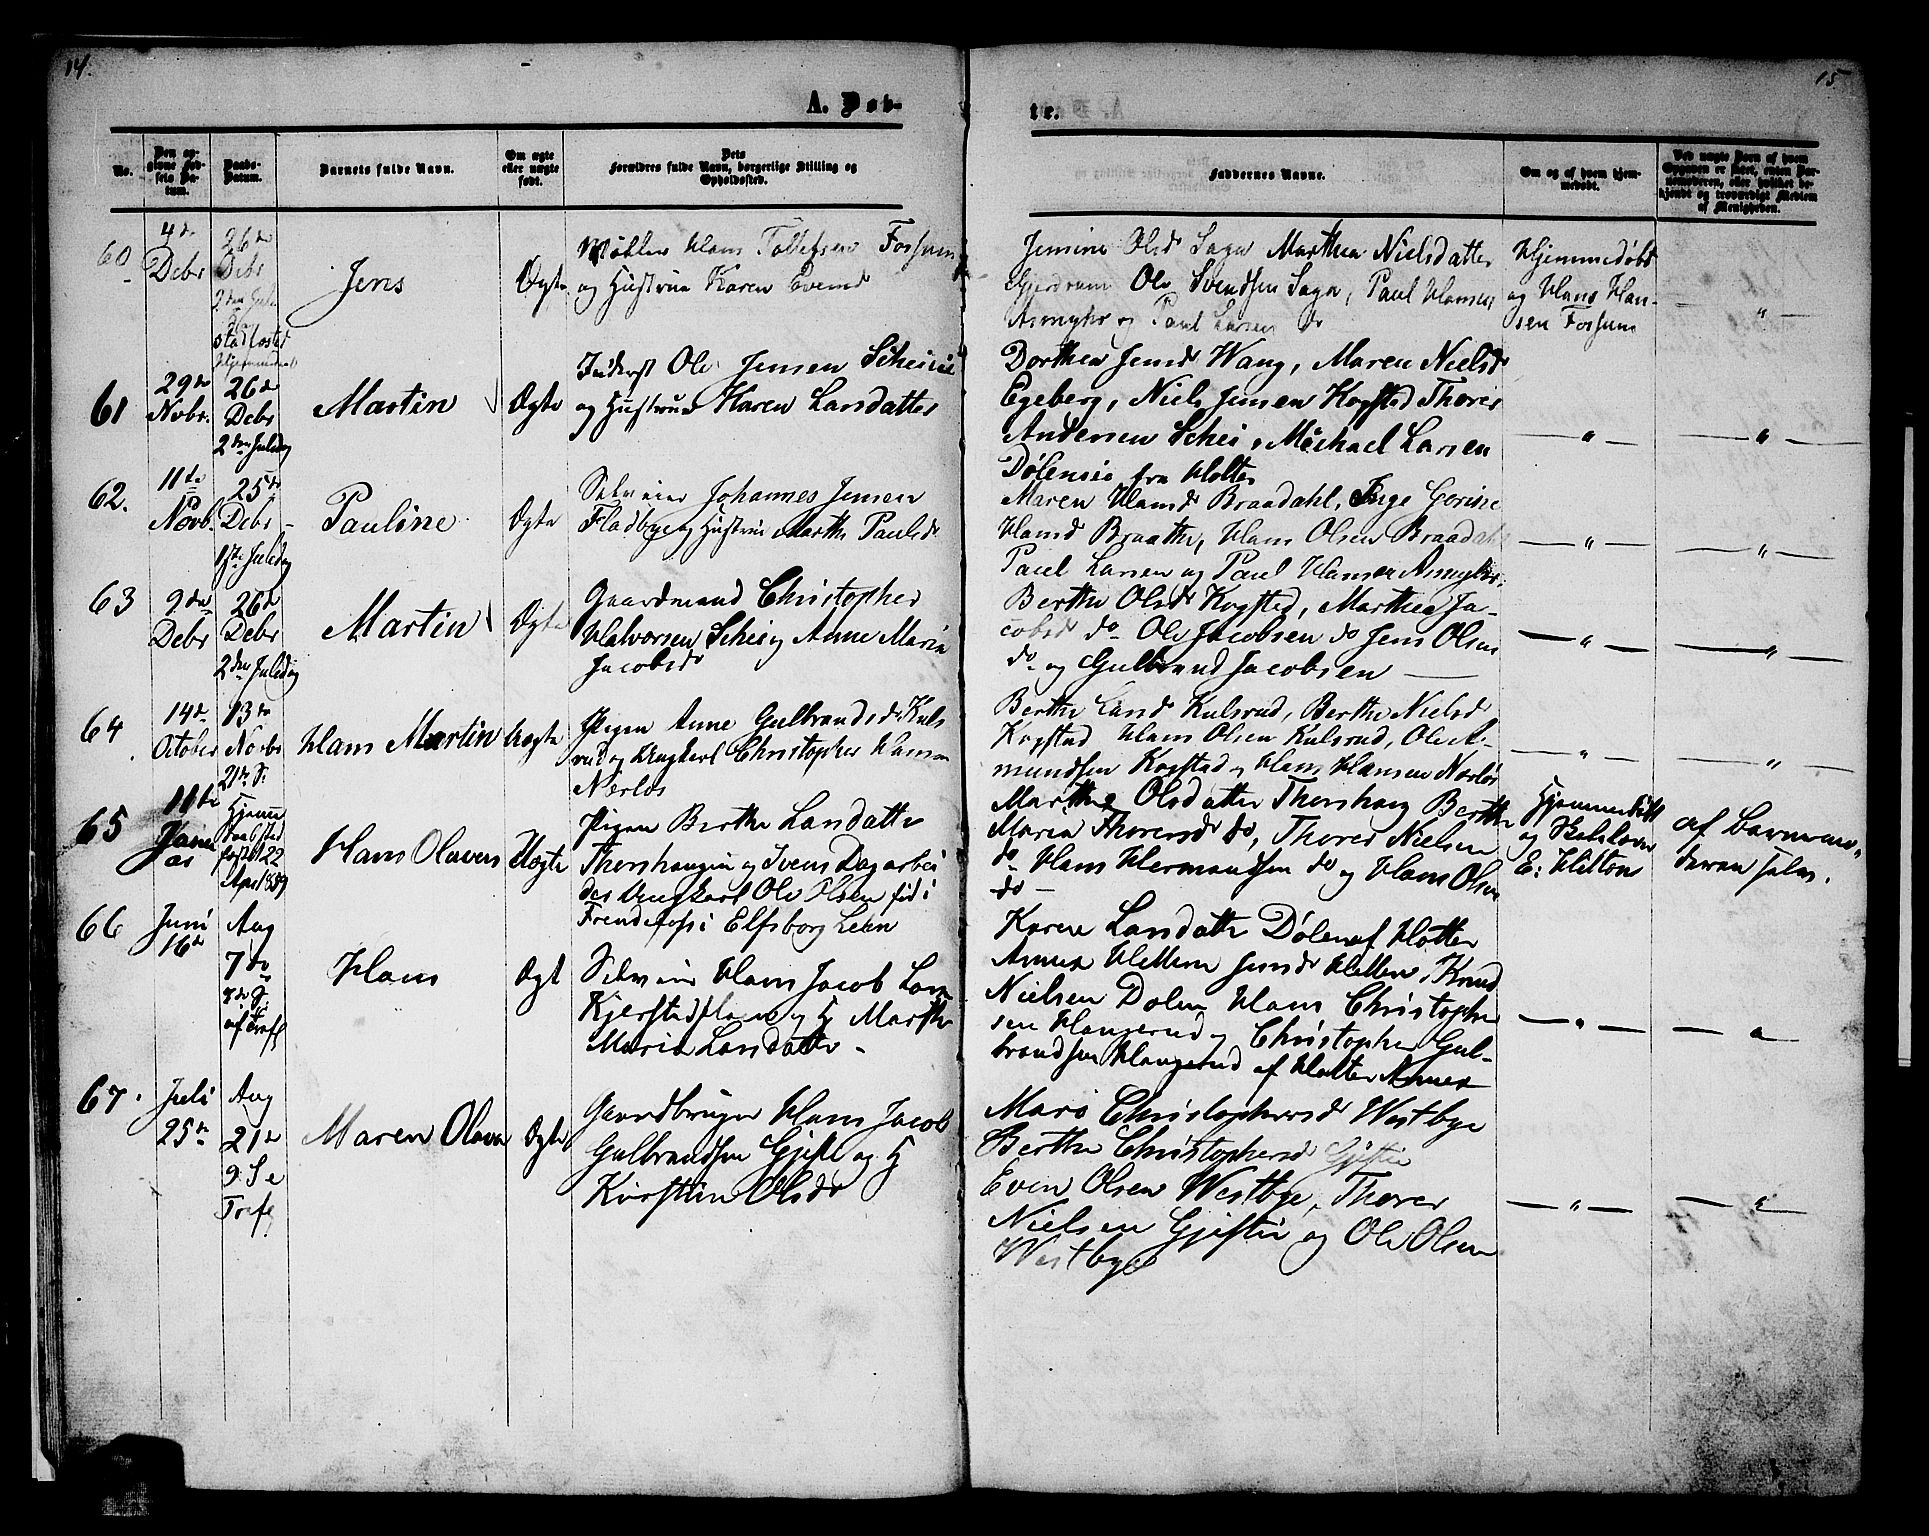 14.
15
A. Døb-
te.
No.
Den opgivne Fødsels Datum.
Daabs-Datum.
Barnets fulde Navn.
Om ægte eller uægte født.
Dets Forældres fulde Navn, borgerlige Stilling og Opholdssted.
Faddernes Navne.
Om og af hvem hjemmedøbt.
Ved uægte Børn af hvem
60
4de
Debr
26de
Debr
stadfæstet
Jens
Ægte
Hans Tollefsen Fossum
og Hustrue Karen Evensd
Jensine Olsd Saga Marthea Nielsdatter
Gjerdrum Ole Svendsen Saga, Paul Hansen
Asmyhr og Paul Larsen do
Hjemmedøbt
og Hans Han-
sen Fossum
— " —
61
29de
Novbr.
26de
Debr
2den Juledag
Martin
Ægte
Inderst Ole Jensen Scheieie
og Hustrue Karen Larsdatter
Dorthea Jensd Wang, Maren Nielsd
Egeberg, Niels Jensen Kogstad Thorer
Andersen Schei, Michael Larsen
Døleneie fra Holter
— " —
— " —
62.
11te
Novb.
25de
Debr
1ste Juledag
Pauline
Ægte
Selveier Johannes Jensen
Fladbye og Hustrue Marthe Paulsd
Maren Hansd Braadahl, Inge Gorine
Hansd Braathe, Hans Olsen Braadahl
Paul Larsen og Paul Hansen Asmyhr.
— " —
— " —
63
9de
Debr
26de
Debr
2den Juledag
Martin
Ægte
Gaardmand Christopher
Halvorsen Schei og Anne Maria
Jacobsd
Berthe Olsd Kogstad, Marthea Ja-
cobsd do Ole Jacobsen do Jens Olsen
do og Gulbrand Jacobsen —
— " —
— " —
64
14de
October
13de
Novbr
21de S.
Hans Martin
Uægte
Pigen Anne Gulbrandsd Kuls
rud og Ungkarl Christopher Hansen
Nerlos
Berthe Larsd Kulsrud, Berthe Nielsd
Kogstad Hans Olsen Kulsrud, Ole A-
mundsen Kogstad og Hans Hansen Nerlos
— " —
— " —
65
11te
Januar
Hjemme
22
April
Hans Olavus
Uægte
Pigen Berthe Larsdatter
Thorshaugen og Svensk Dagarbei
der Ungkarl Ole Olsen fød i
Frendefors i Elfsborg Lehn
Marthe Olsdatter Thorshaug Berthe
Maria Thorersd do, Thorer Nielsen
do Hans Hermandsen do og Hans Olsen
do —
Hjemmedøbt
og Skolelærer
E: Hilton
af barnemo-
deren selv.
66
Juni
16de
Aug
7de
af Tref
Hans
Ægt
Selveier Hans Jacob Lars
og H Marthe
Maria Larsdatter -
Karen Larsdatter Dølen af Holter
Annex Jensd Knud
Nielsen Dølen Hans Christopher
sen Haugerud og Christopher Gul-
brandsen Haugerud af Holter Annex
— " —
— " —
67.
Juli
25de
Aug
21de
9. S e
Tref
Maren Olava
Ægte
Gaardbruger Hans Jacob
Gulbrandsen Gjestie og H
Kirstin Olsd
Mari Christophersd Westbye
Berthe Christophersd Gjestie
Even Olsen Westbye, Thorer
Nielsen Gjestie og Ole Olsen
Westbye
— " —
— " —